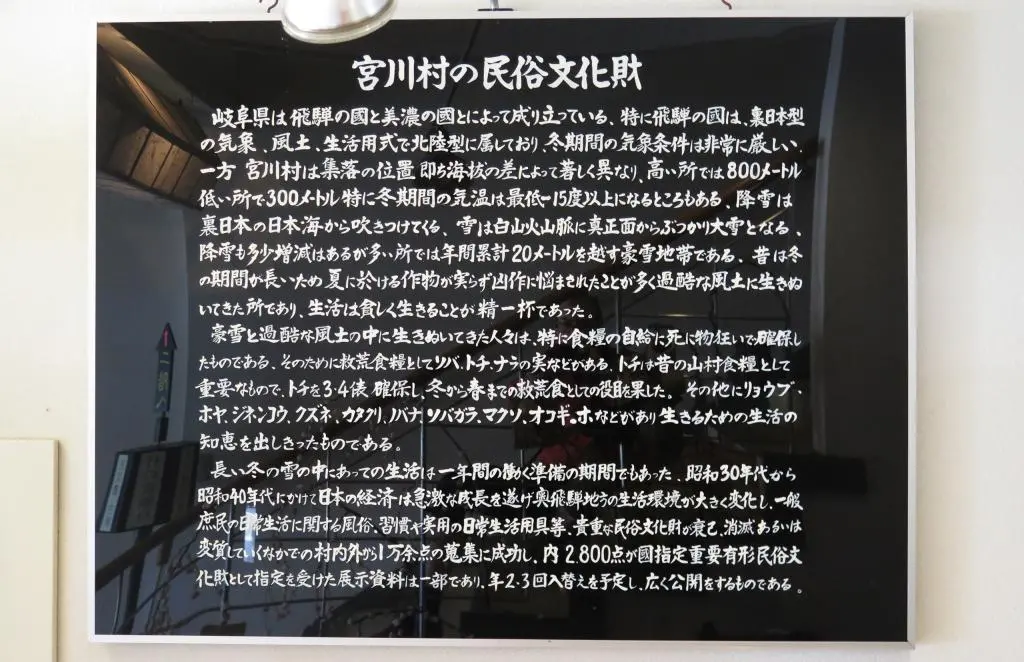 宮川村の民俗文化財
岐阜県は飛騨の國と美濃の國とによって成り立っている、特に飛騨の國は、裏日本型
の気象、風土、生活用式で北陸型に属しており、冬期間の気象条件は非常に厳しい、
一方 宮川村は集落の位置 即ち海抜の差によって著しく異なり、高い所では800メートル
低い所で300メートル 特に冬期間の気温は最低-15度以上になるところもある、降雪は
裏日本の日本海から吹きつけてくる、雪は白山火山脈に真正面からぶつかり大雪となる、
降雪も多少増減はあるが多い所では年間累計20メートルを越す豪雪地帯である、昔は冬
の期間が長いため 夏に於ける作物が実らず凶作に悩まされたことが多く過酷な風土に生きぬ
いてきた所であり、生活は貧しく生きることが精一杯であった。
豪雪と過酷な風土の中に生きぬいてきた人々は、特に食糧の自給に死に物狂いで確保し
たものである、そのために救荒食糧としてソバ、トチ、ナラの実などがある、トチは昔の山村食糧として
重要なもので、トチを3.4俵 確保し、冬から春までの救荒食としての役目を果した。その他にリョウブ・
ホヤ、ジネンコウ、クズネ、カタクリ、ノバナ、ソバガラ、マクソ、オコギ、ホなどがあり 生きるための生活の
知恵を出しきったものである。
長い冬の雪の中にあっての生活は一年間の働く準備の期間でもあった、昭和30年代から
昭和40年代にかけて日本の経済は急激な成長を遂げ奥飛騨地方の生活環境が大きく変化し、一般
庶民の日常生活に関する風俗、習慣や実用の日常生活用具等、貴重な民俗文化財が衰亡、消滅あるいは
変質していくなかでの村内外から1万余点の蒐集に成功し、内2.800点が國指定重要有形民俗文
化財として指定を受けた展示資料は一部であり、年2-3回入替えを予定し、広く公開をするものである。